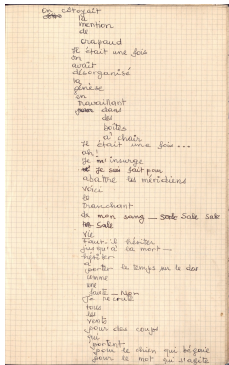 on côtoyait
la
mention
de
crapaud
Il était une fois
on
avait
désorganisé
la
genèse
en
travaillant
dans
des
boîtes
à chair
Il était une fois ...
ah!
Je m'insurge
Je suis fait pour
abattre les méridiens
voici
le
tranchant
de mon sang — sale sale
sale
vie
Faut-il hésiter
jusqu'à la mort —
hésiter
à
porter le temps sur le dos
comme
une
— Non
Je
tous
les
vents
pour des coups
qui
portent
pour le chien qui bégaie
pour le mot qui s'agite